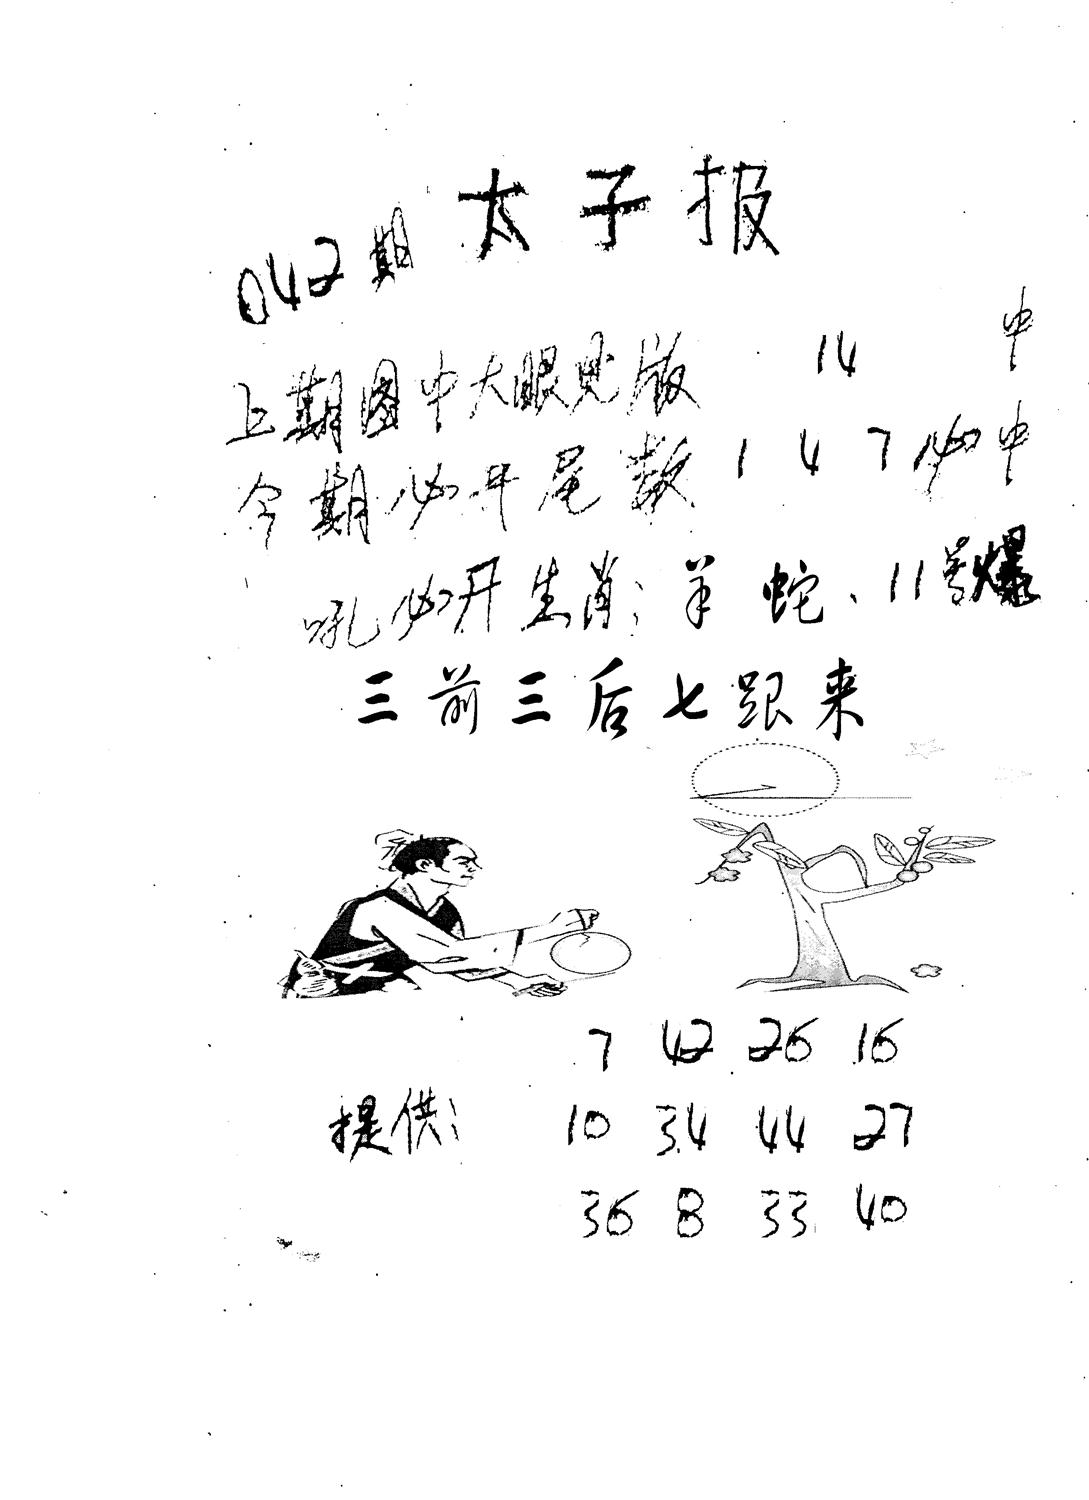 太子报
042期
上期图中大眼见版 14 中
今期必开尾数 1 4 7 必中
吼必开生肖：羊 蛇、11号爆
三前三后七跟来
7 42 26 16
提供： 10 34 44 27
36 8 33 40